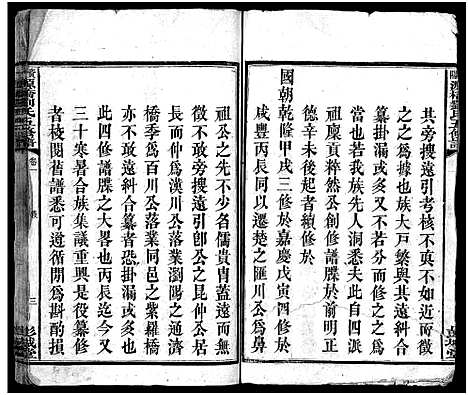 源橋劉氏五修譜
其旁搜遠引考核不爽而無徵不信
之之意其爲也族大戸繁與與其遠糾合
纂掛漏或多又不若分而合修之爲
當也若我族先人洞悉夫此自四派
祖康貢粹然公創修譜牒於前明正
德辛未後起者續修於
國朝乾隆甲戌三修於嘉慶戊寅四修於
咸豐丙辰上遞遷楚之匯川公爲鼻
祖公之先不少名儒貴胄蓋遠而無
徵不敢旁搜遠引卽公之昆仲居長
沙仲公爲漢川公落業瀏陽之通濟
橋季公爲百川公落業同邑之紫羅橋
亦無不敢遠糾合纂者恐掛漏或多
也此四修譜牒之大畧也丙辰迄今又
三十寒暑合族集議重興是役纂修
者棱閱舊譜悉可遵循間爲斟酌損
源橋劉氏五修譜
卷一
三
彭城堂